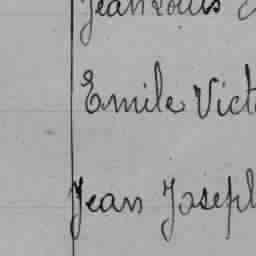 Jean Louis
Emile Vict
Jean Joseph